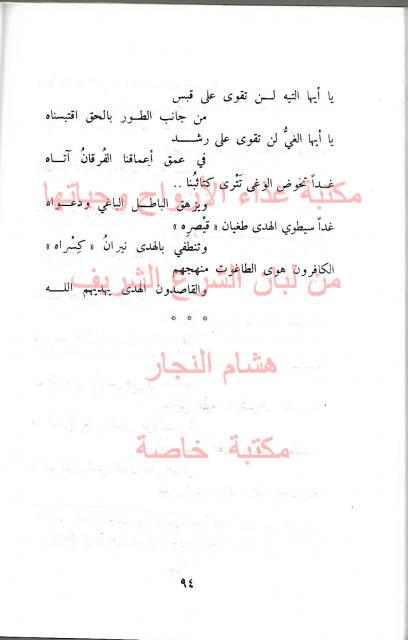 يا أيها التيه لـــن تقوى على قبس
من جانب الطـور بالحق اقتبسناه
يا أيها الغيُّ لن تقوى على رشـــد
في عمق أعماقنا الفُرقانُ آتـاه
غداً تخوض الوغى تَتْرى كتائبُنا ..
ويزهق الباطـل الباغي ودعْـواه
غداً سيطوي الهدى طغيان « قَيْصرِه »
وتنطفي بالهدى نيرانُ « كِسْراه »
الكافرون هوى الطاغوت منهجهم
والقاصدون الهدى يهديهم اللــه
مكتبة غذاء الأرواح وحياتها
من لبان الشرع الشريف
هشام النجار
مكتبة خاصة
٩٤